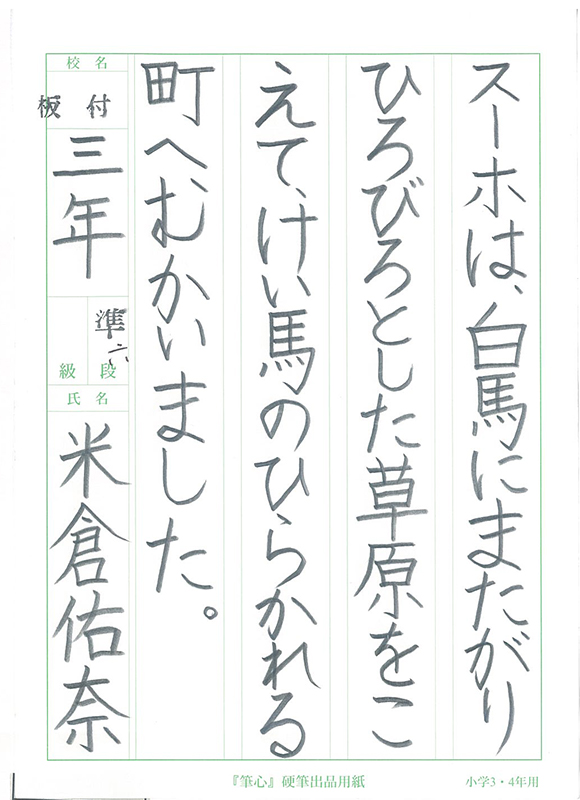 スーホは、白馬にまたがり
ひろびろとした草原をこ
えて、けい馬のひらかれる
町へむかいました。
校名
板付
三年
準六
段
級
氏名
米倉佑奈
『筆心』硬筆出品用紙
小学3・4年用